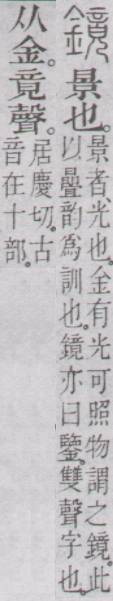 鏡景也。景者、光也。金有光可照物謂之鏡。此
以㬪韵爲訓也。鏡亦曰鑒。雙聲字也。
从金。竟聲。居慶切。古
音在十部。